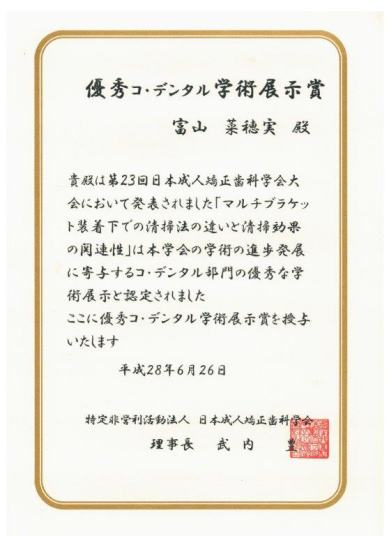 優秀コ・デンタル学術展示賞
富山 菜穂実 殿
貴殿は第23回日本成人矯正歯科学会大
会において発表されました「マルチブラケッ
ト装着下での清掃法の違いと清掃効果
の関連性」は本学会の学術の進歩発展
に寄与するコ・デンタル部門の優秀な学
術展示と認定されました
ここに優秀コ・デンタル学術展示賞を授与
いたします
平成28年6月26日
特定非営利活動法人 日本成人矯正歯科学会
理事長 武内 豊